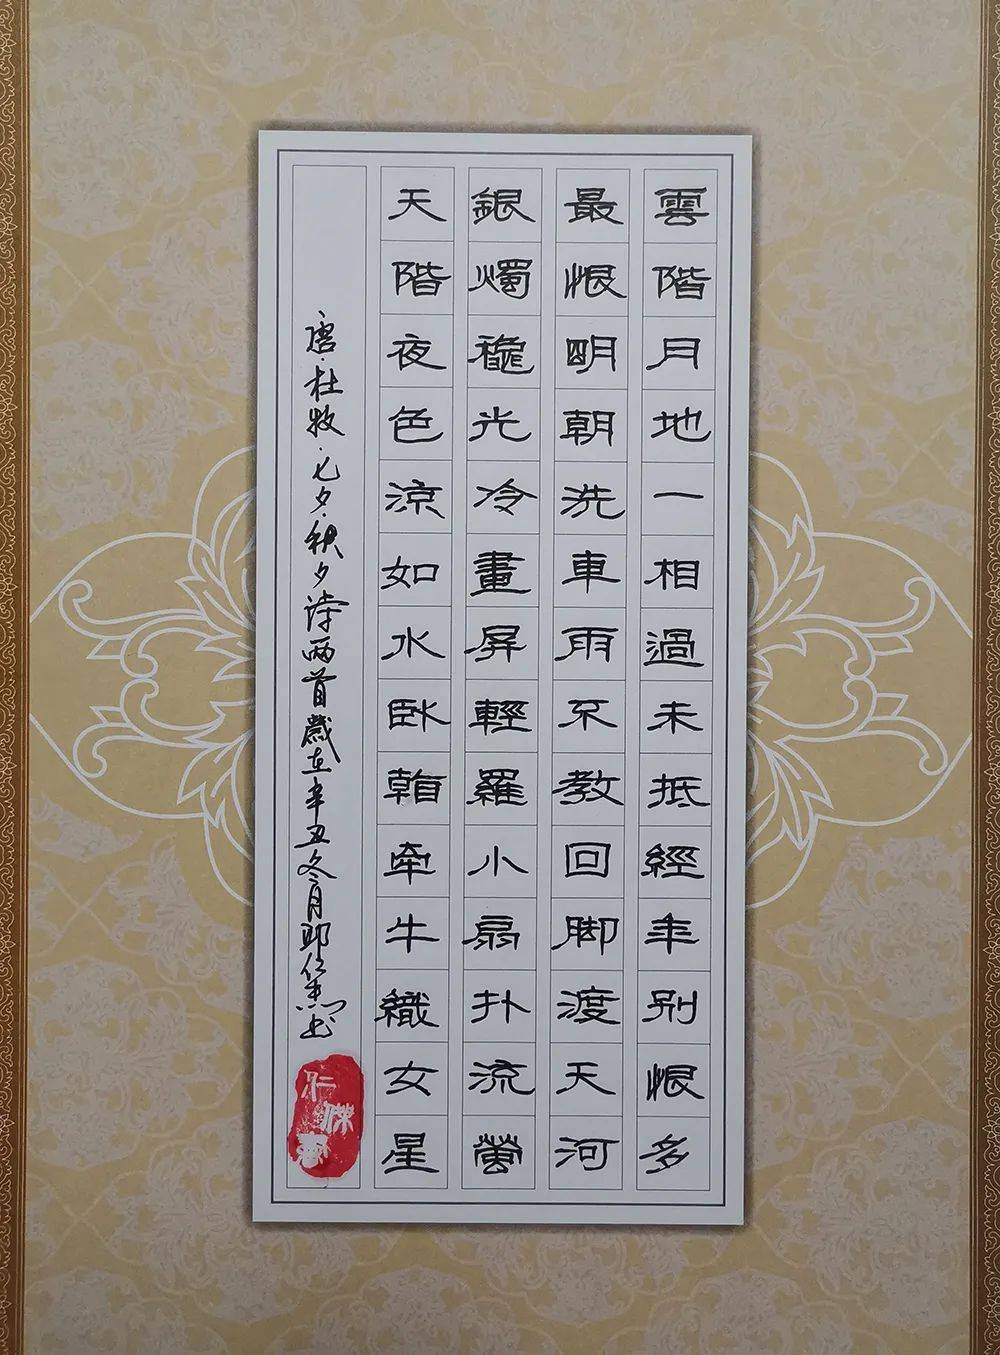 雲階月地一相過未抵經年别恨多
最恨明朝洗車雨不教回脚渡天河
銀燭穐光冷畫屏輕羅小扇扑流螢
天階夜色涼如水卧看牵牛織女星
唐·杜牧·七夕·秋夕诗两首歲在辛丑冬月邱仁杰书
仁傑